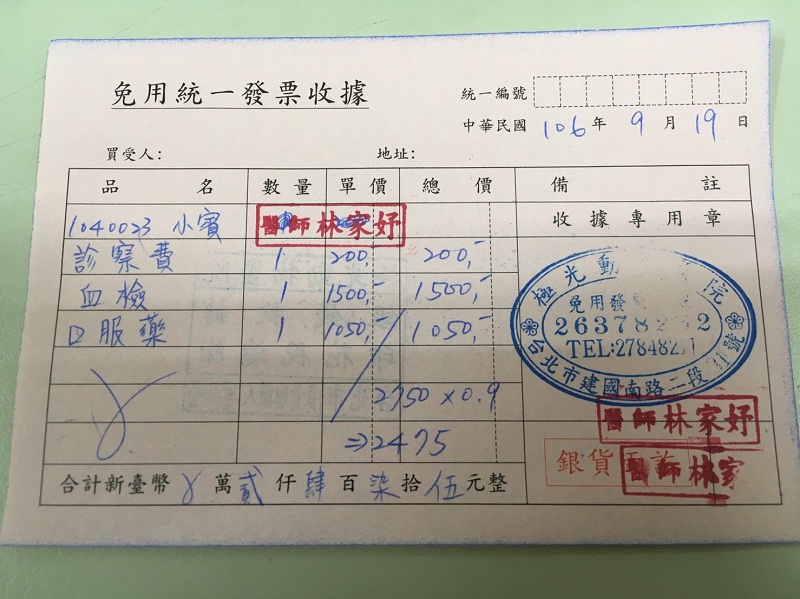 免用統一發票收據
統一編號
中華民國 106 年 9 月 19 日
買受人: 地址:
品名 數量 單價 總價 備註
1040023 小寶 醫師林家妤 收據專用章
診察費 1 200,- 200,-
血檢 1 1500,- 1500,-
口服藥 1 1050,- 1050,-
2750 x 0.9
⇒2475
合計新臺幣 萬貳仟肆百柒拾伍元整
極光動 院
免用發
TEL:
台北市建國南路二段 號
醫師林家妤
銀貨
醫師林家